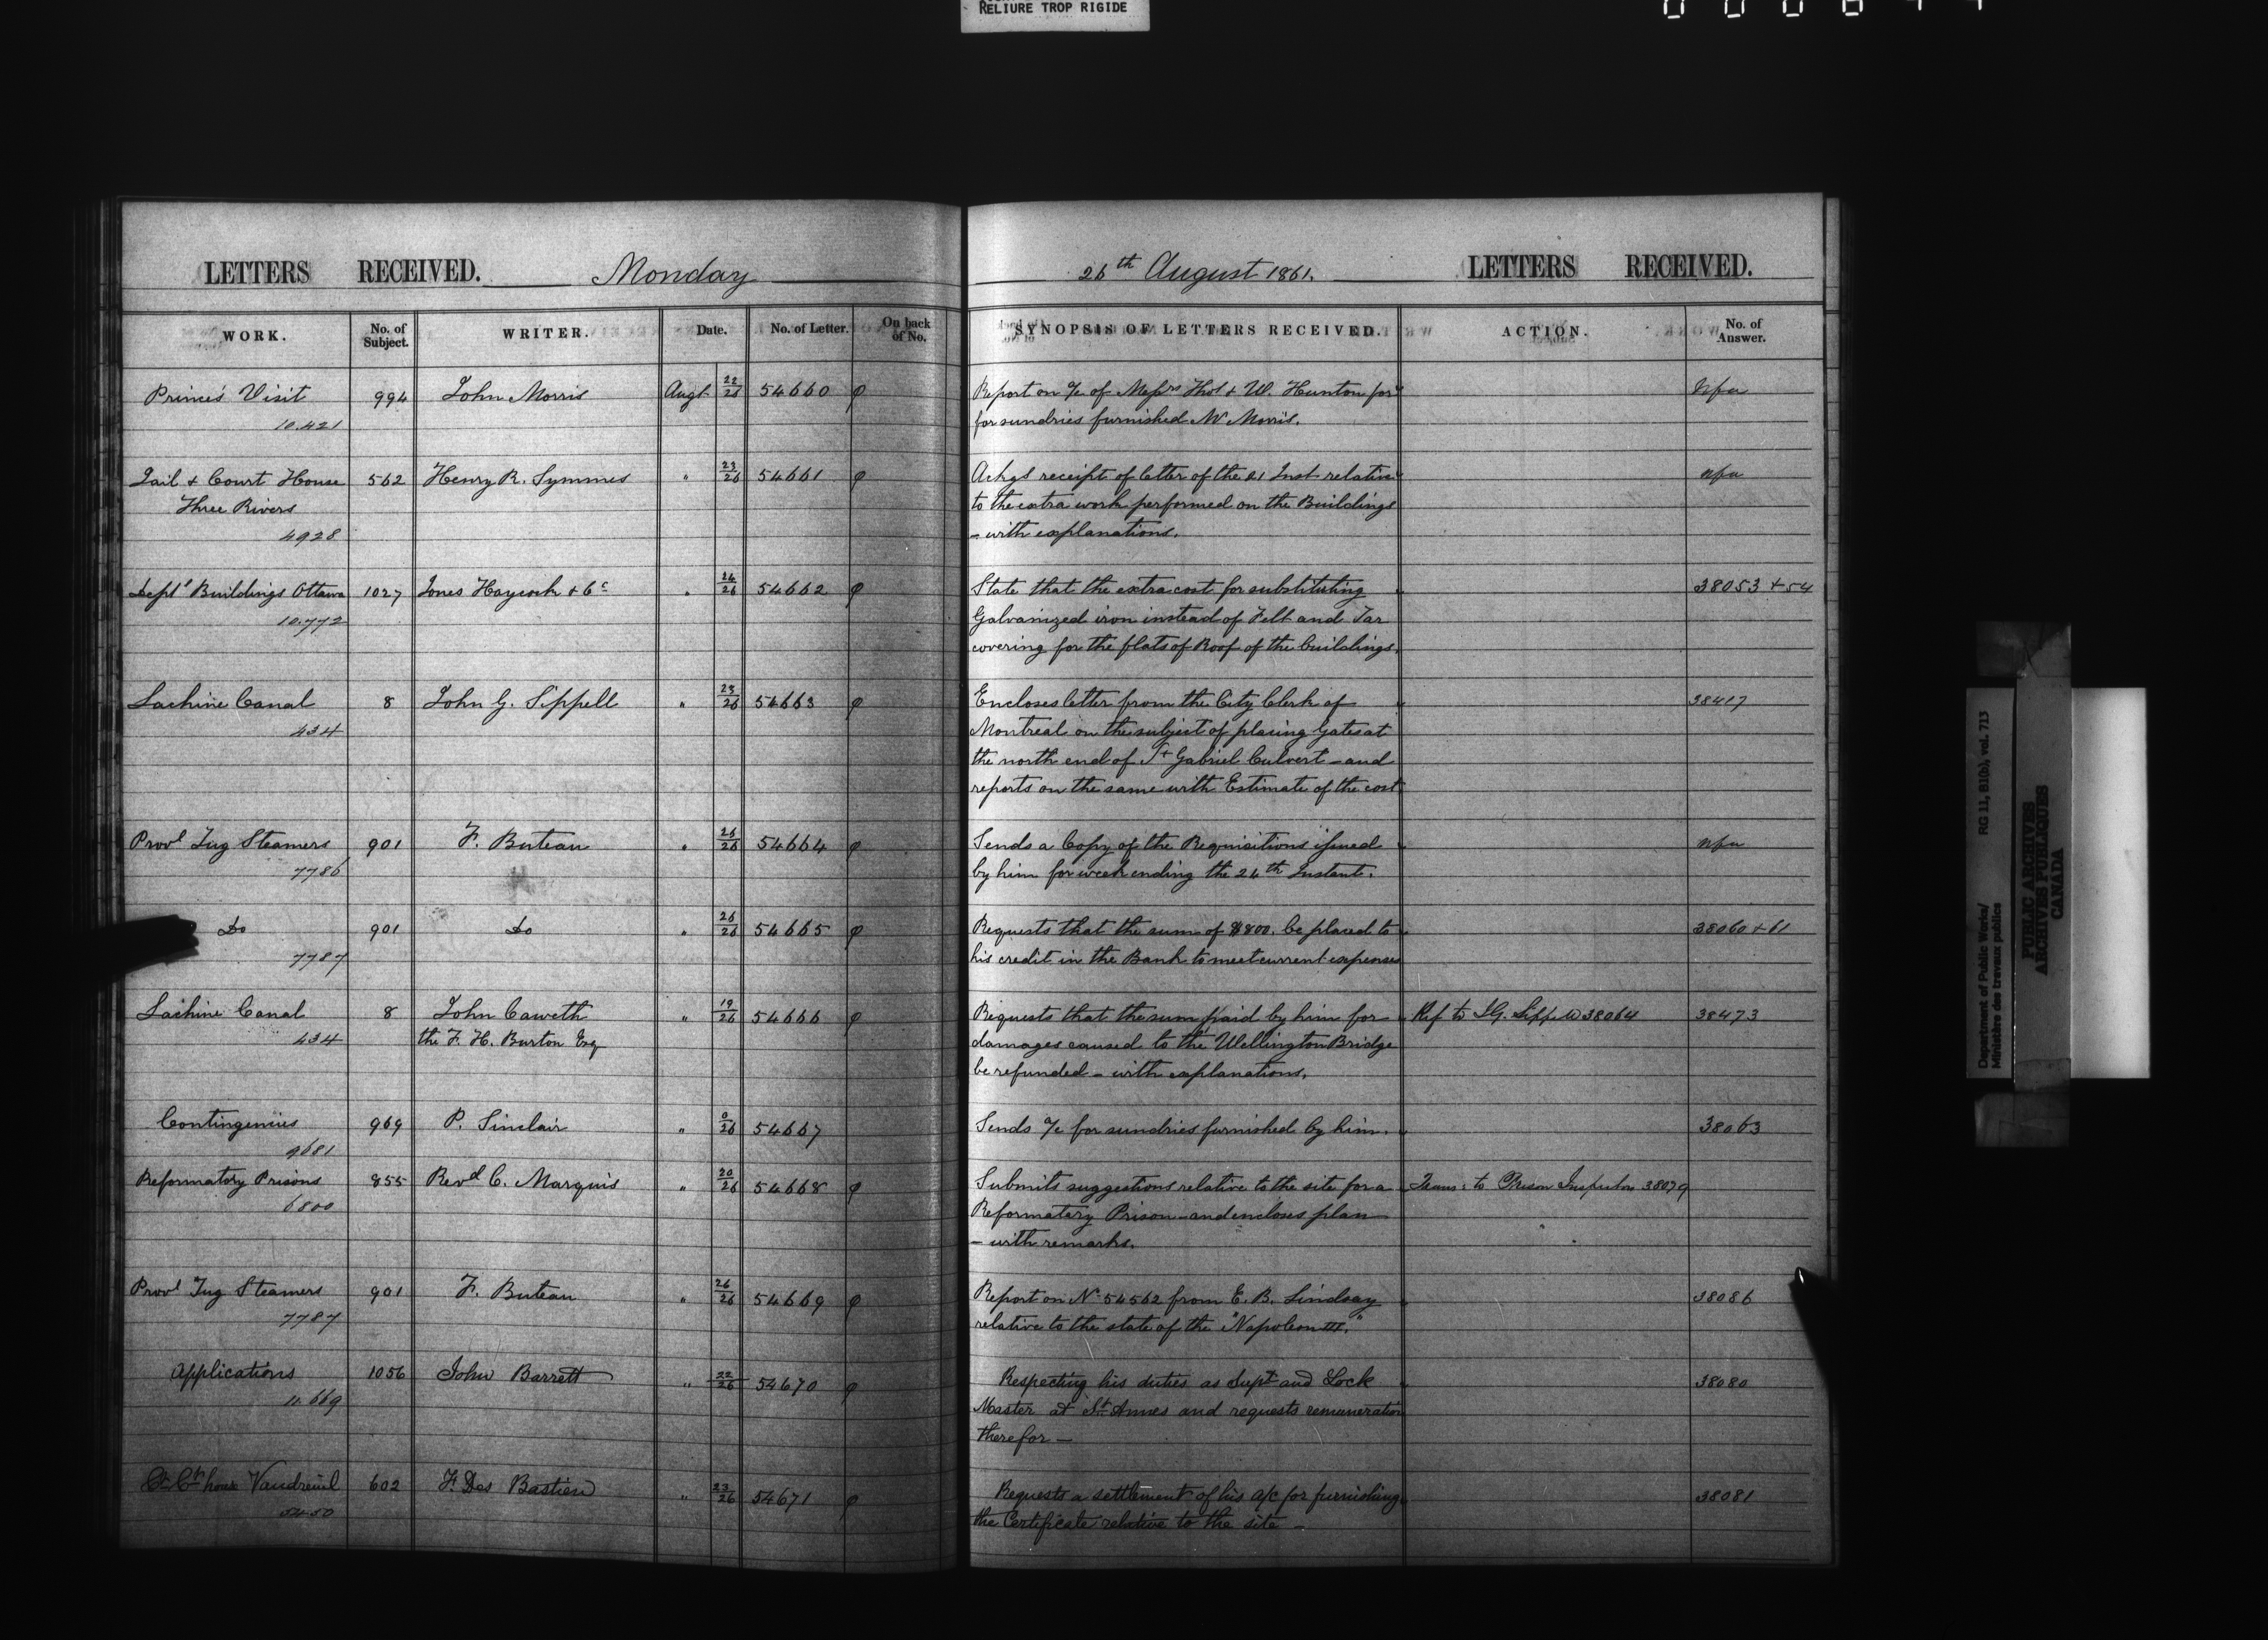 RELIURE TROP RIGIDE
LETTERS RECEIVED. Monday
26th August 1861. LETTERS RECEIVED.
WORK. No. of Subject. WRITER. Date. No. of Letter. On back of No. SYNOPSIS OF LETTERS RECEIVED. ACTION. No. of Answer.
Prince's Visit 994 John Morris Augt 22/26 54660 φ Report on a/c of Messrs Thos & W. Hunton for nfa
10.421 for sundries furnished Mr Morris.
Jail & Court House 562 Henry R. Symmes " 23/26 54661 φ Ackgs receipt of letter of the 21 Inst relative nfa
Three Rivers to the extra work performed on the Buildings
4928 - with explanations.
Deptl Buildings Ottawa 1027 Jones Haycock & Co " 24/26 54662 φ State that the extra cost for substituting 38053 & 54
10.772 Galvanized iron instead of Felt and Tar
covering for the flats of Roof of the buildings.
Lachine Canal 8 John G. Sippell " 23/26 54663 φ Encloses letter from the City Clerk of 38417
434 Montreal on the subject of placing gates at
the north end of St Gabriel Culvert - and
reports on the same with Estimate of the cost
Provl Tug Steamers 901 F. Buteau " 26/26 54664 φ Sends a Copy of the Requisitions issued nfa
7786 by him for week ending the 24th Instant.
Do 901 Do " 26/26 54665 φ Requests that the sum of $800. be placed to 38060 & 61
7787 his credit in the Bank to meet current expenses
Lachine Canal 8 John Caweth " 19/26 54666 φ Requests that the sum paid by him for Ref to J.G. Sippell 38064 38473
434 the F. H. Burton Esq damages caused to the Wellington Bridge
be refunded - with explanations.
Contingencies 969 P. Sinclair " 0/26 54667 Sends a/c for sundries furnished by him. 38063
9681
Reformatory Prisons 855 Revd C. Marquis " 20/26 54668 φ Submits suggestions relative to the site for a Trans: to Prison Inspectors 38079
6800 Reformatory Prison - and encloses plan
- with remarks.
Provl Tug Steamers 901 F. Buteau " 26/26 54669 φ Report on No 54562 from E. B. Lindsay 38086
7787 relative to the state of the "Napoleon III."
Applications 1056 John Barrett " 22/26 54670 φ Respecting his duties as Supt and Lock 38080
11.669 Master at St Annes and requests remuneration
therefor -
Ct house Vaudreuil 602 F. Des Bastien " 23/26 54671 φ Requests a settlement of his a/c for furnishing 38081
5450 the Certificate relative to the site -
Department of Public Works/ RG 11, B1(b), vol. 713
Ministère des travaux publics
PUBLIC ARCHIVES
ARCHIVES PUBLIQUES
CANADA